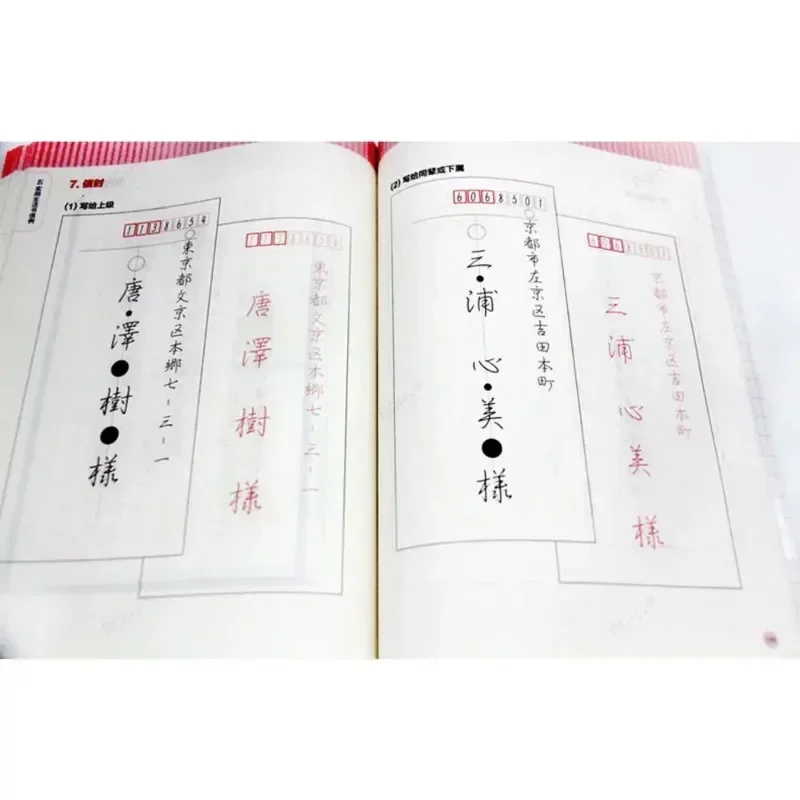 五 实用生活书信例
7. 信封
(1) 写给上级
1138654
東京都文京区本郷七-三-一
唐・澤●樹●様
1138654
東京都文京区本郷七-三-一
唐澤樹様
(2) 写给同辈或下属
6068501
京都市左京区吉田本町
三・浦 心・美●様
6068501
京都市左京区吉田本町
三浦心美様